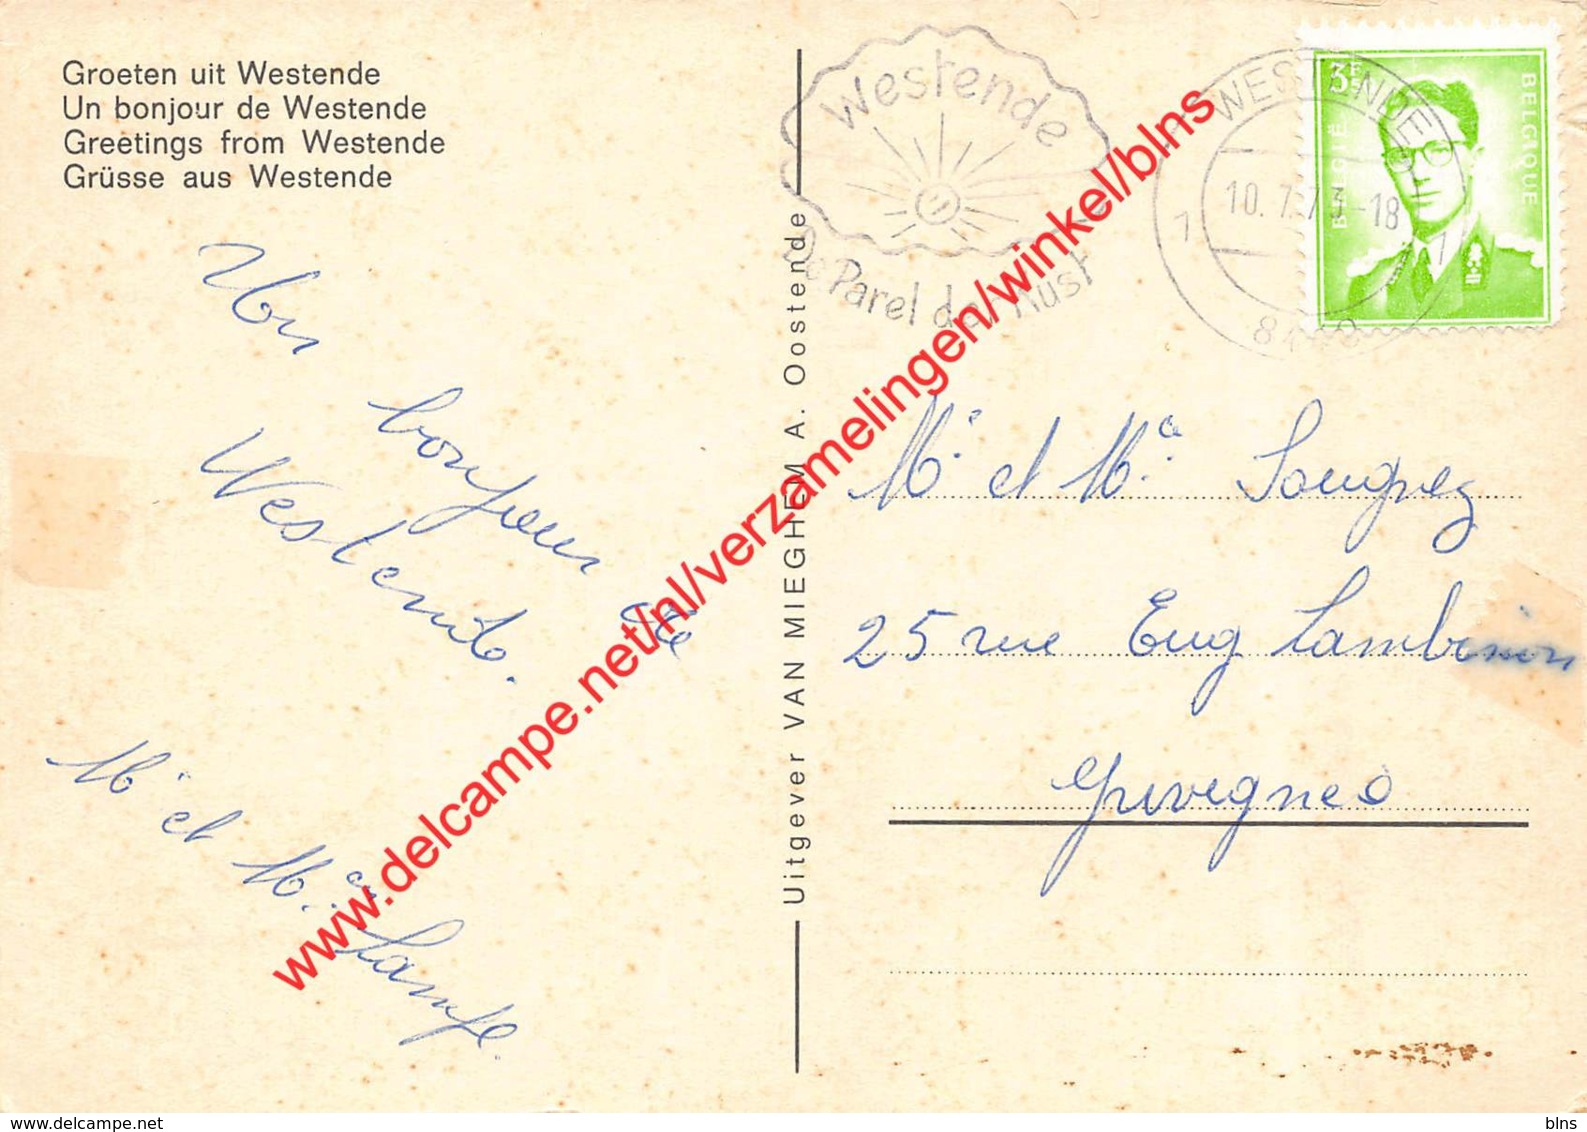 Groeten uit Westende
Un bonjour de Westende
Greetings from Westende
Grüsse aus Westende
Westende
De Parel der Kust
WESTENDE
10. 7. 73-18
3F
BELGIË
BELGIQUE
Un bonjour de
Westende.
Mr et Me Lampe.
Uitgever VAN MIEGHEM A. Oostende
Mr et Me Sougnez
25 rue Eug Lambinon
Grivegnee
www.delcampe.net/nl/verzamelingen/winkel/blns
www.delcampe.net
blns